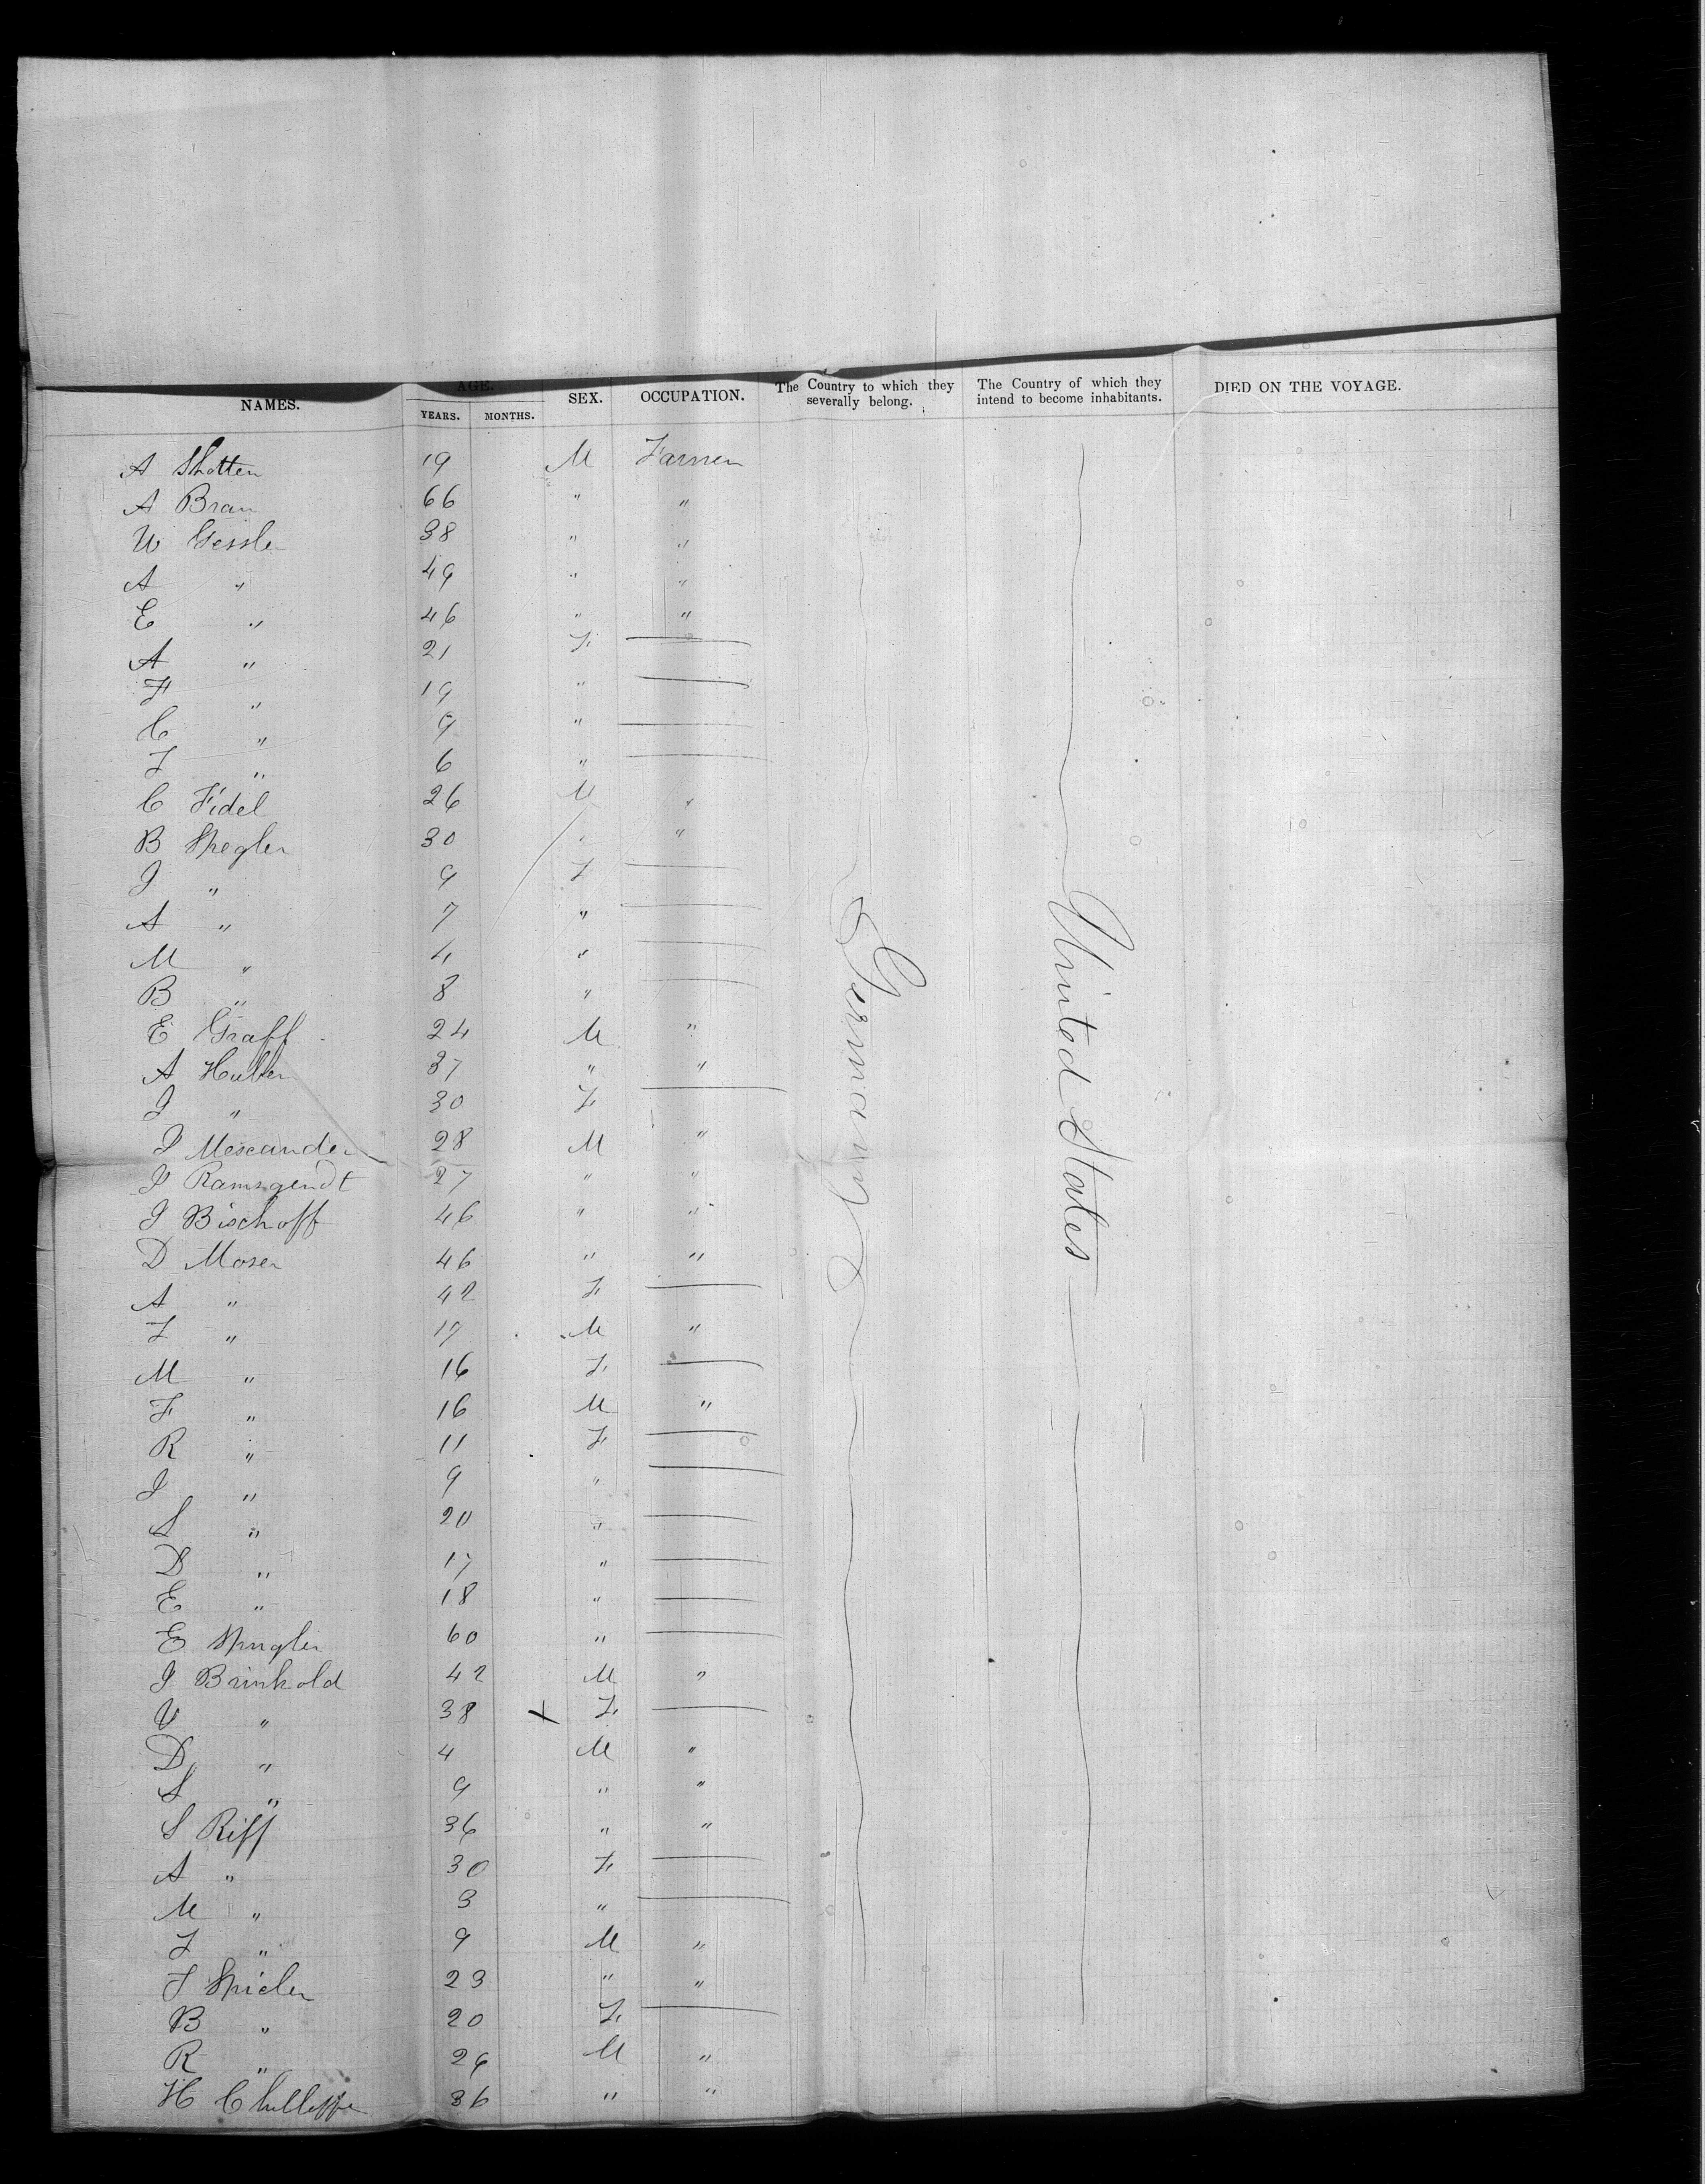 NAMES. AGE. YEARS. MONTHS. SEX. OCCUPATION. The Country to which they severally belong. The Country of which they intend to become inhabitants. DIED ON THE VOYAGE.
A Shotten 19 M Farmer
A Bran 66 " "
W Gessler 38 " "
A " 49 " "
E " 46 " "
A " 21 F
F " 19 "
C " 9 "
F " 6 "
C Fidel 26 M "
B Spegler 30 " "
J " 9 F
A " 7 "
M " 4 "
B " 8 "
E Graff 24 M "
A Huber 37 " "
J " 30 F
28 M "
27 " "
J Bischoff 46 " "
D Moser 46 " "
A " 42 F
F " 17 M "
M " 16 F
F " 16 M "
R " 11 F
J " 9 "
S " 20 "
D " 17 "
E " 18 "
E Spugler 60 "
J Brinkold 42 M "
V " 38 X F
D " 4 M "
S " 9 " "
S Riff 36 " "
A " 30 F
M " 3 "
F " 9 M "
F Spieler 23 " "
B " 20 F
R " 26 M "
H 36 " "
Germany
United States